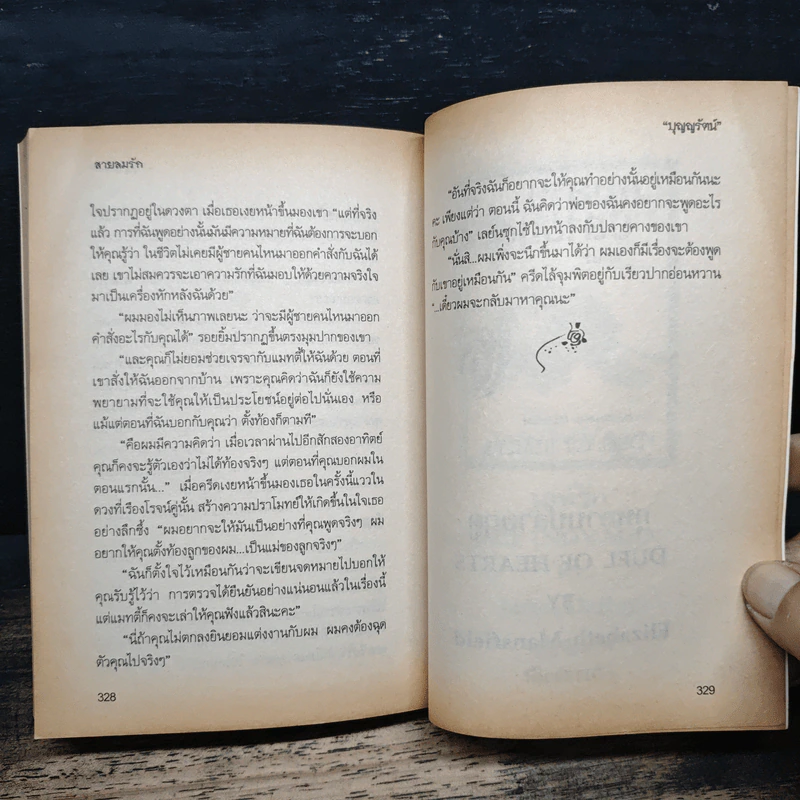 สายลมรัก
ใจปรากฏอยู่ในดวงตา เมื่อเธอเงยหน้าขึ้นมองเขา “แต่ที่จริง
แล้ว การที่ฉันพูดอย่างนั้นมันมีความหมายที่ฉันต้องการจะบอก
ให้คุณรู้ว่า ในชีวิตไม่เคยมีผู้ชายคนไหนมาออกคำสั่งกับฉันได้
เลย เขาไม่สมควรจะเอาความรักที่ฉันมอบให้ด้วยความจริงใจ
มาเป็นเครื่องหักหลังฉันด้วย”
“ผมมองไม่เห็นภาพเลยนะ ว่าจะมีผู้ชายคนไหนมาออก
คำสั่งอะไรกับคุณได้” รอยยิ้มปรากฏขึ้นตรงมุมปากของเขา
“และคุณก็ไม่ยอมช่วยเจรจากับแมทตี้ให้ฉันด้วย ตอนที่
เขาสั่งให้ฉันออกจากบ้าน เพราะคุณคิดว่าฉันก็ยังใช้ความ
พยายามที่จะใช้คุณให้เป็นประโยชน์อยู่ต่อไปนั่นเอง หรือ
แม้แต่ตอนที่ฉันบอกกับคุณว่า ตั้งท้องก็ตามที”
“คือผมมีความคิดว่า เมื่อเวลาผ่านไปอีกสักสองอาทิตย์
คุณก็คงจะรู้ตัวเองว่าไม่ได้ท้องจริงๆ แต่ตอนที่คุณบอกผมใน
ตอนแรกนั้น...” เมื่อครีดเงยหน้าขึ้นมองเธอในครั้งนี้แววใน
ดวงที่เรืองโรจน์คู่นั้น สร้างความปราโมทย์ให้เกิดขึ้นในใจเธอ
อย่างลึกซึ้ง “ผมอยากจะให้มันเป็นอย่างที่คุณพูดจริงๆ ผม
อยากให้คุณตั้งท้องลูกของผม...เป็นแม่ของลูกจริงๆ”
“ฉันก็ตั้งใจไว้เหมือนกันว่าจะเขียนจดหมายไปบอกให้
คุณรับรู้ไว้ว่า การตรวจได้ยืนยันอย่างแน่นอนแล้วในเรื่องนี้
แต่แมทตี้ก็คงจะเล่าให้คุณฟังแล้วสินะคะ”
“นี่ถ้าคุณไม่ตกลงยินยอมแต่งงานกับผม ผมคงต้องฉุด
ตัวคุณไปจริงๆ”
328
“บุญญรัตน์”
“อันที่จริงฉันก็อยากจะให้คุณทำอย่างนั้นอยู่เหมือนกันนะ
คะ เพียงแต่ว่า ตอนนี้ ฉันคิดว่าพ่อของฉันคงอยากจะพูดอะไร
กับคุณบ้าง” เลย์นซุกไซ้ใบหน้าลงกับปลายคางของเขา
“นั่นสิ...ผมเพิ่งจะนึกขึ้นมาได้ว่า ผมเองก็มีเรื่องจะต้องพูด
กับเขาอยู่เหมือนกัน” ครีดไล้จุมพิตอยู่กับเรียวปากอ่อนหวาน
“...เดี๋ยวผมจะกลับมาหาคุณนะ”
329